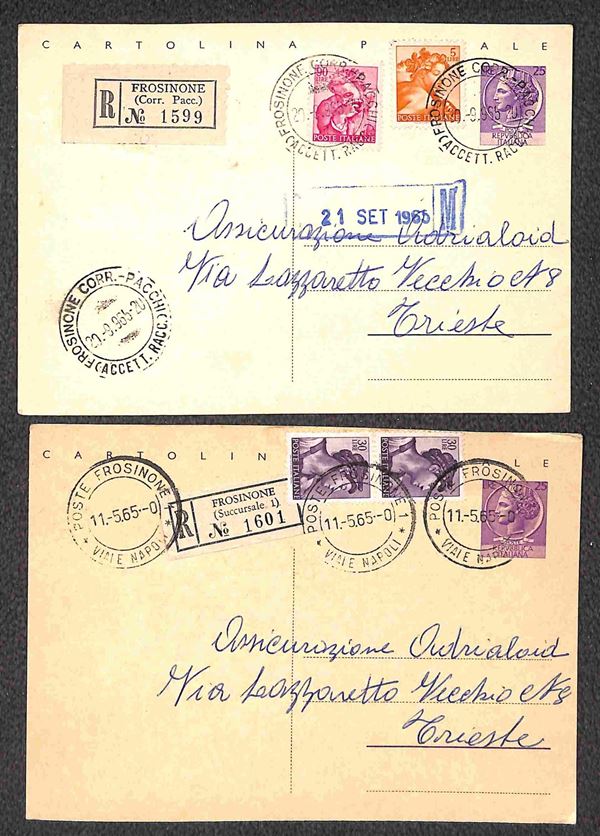 CARTOLINA P ALE
FROSINONE
(Corr. Pacc.)
R
No 1599
90 LIRE
POSTE ITALIANE
5 LIRE
POSTE ITALIANE
25
REPUBBLICA
ITALIANA
FROSINONE CORR.-PACCHI
(ACCETT. RACC.)
FROSINONE CORR.-PACCHI
.-9.965-20
(ACCETT. RACC.)
21 SET 1965 M
Assicurazione Adrialoid
Via Lazzaretto Vecchio N 8
Trieste
FROSINONE CORR.-PACCHI
20.-9.965-20
(ACCETT. RACC.)
CARTOLIN ALE
POSTE FROSINONE 1
11.-5.65.-0
* VIALE NAPOLI *
FROSINONE
(Succursale 1)
R
No 1601
30 LIRE
POSTE ITALIANE
30 LIRE
POSTE ITALIANE
POSTE FROSINONE 1
11.-5.65.-0
* VIALE NAPOLI *
25
REPUBBLICA
ITALIANA
POSTE FROSINONE 1
11.-5.65.-0
* VIALE NAPOLI *
Assicurazione Adrialoid
Via Lazzaretto Vecchio N 8
Trieste